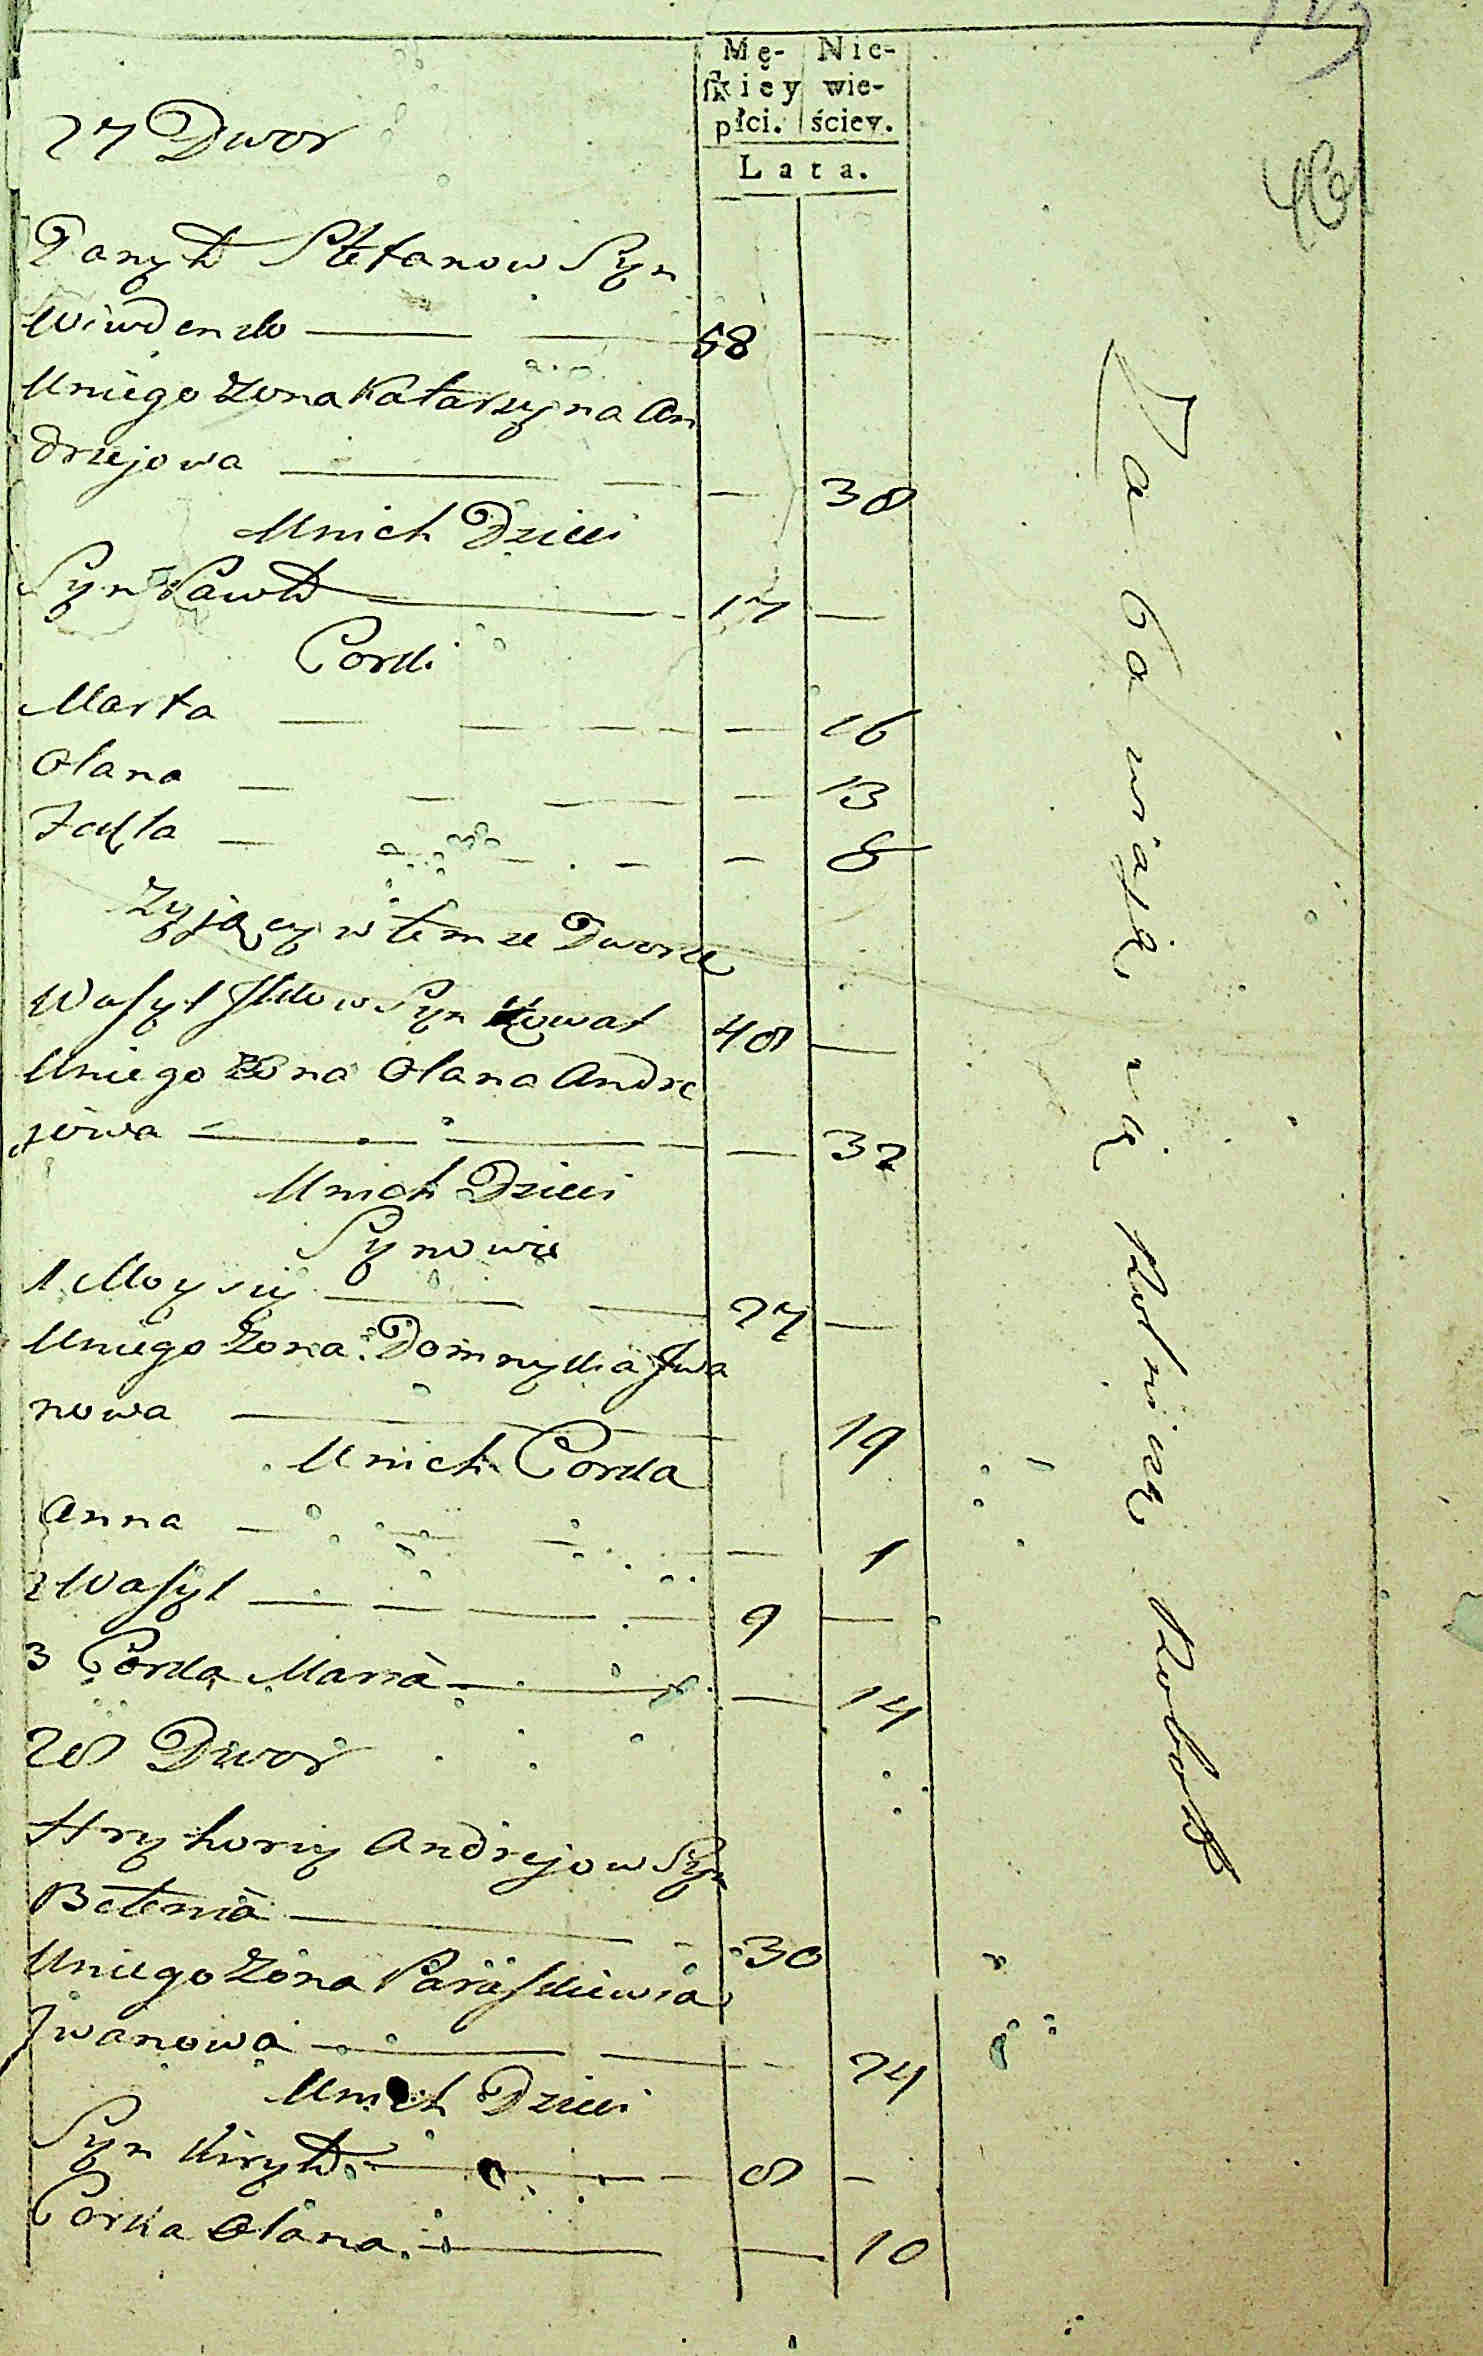 Mę- Nie-
ſkiey wie-
płci. ściey.
Lata.
46
27 Dwor
Danyło Stefanow Syn
58 —
Uniego Żona Katarzyna An
drejowa — 38
Unich Dzieci
Syn Pawło 17 —
Corki
Marta — 16
Olana — 13
Jewła — 8
Żyjący w temże Dworze
Wasyl Syn Kował 48 —
Uniego Żona Olana Andre
jowa — 32
Unich Dzieci
Synowie
1 Moysiy 27 —
Uniego Żona Domnykia Jwa
nowa 19
Unich Corka
Anna — 1
2 Wasyl 9 —
3 Corka Maria — 14
28 Dwor
Hryhoriy Andrejow Syn
30
Uniego Żona Paraskiewia
Jwanowa — 24
Unich Dzieci
Syn Kiryło 8 —
Corka Olana — 10
Zabawiają się Rolniczą Robotą